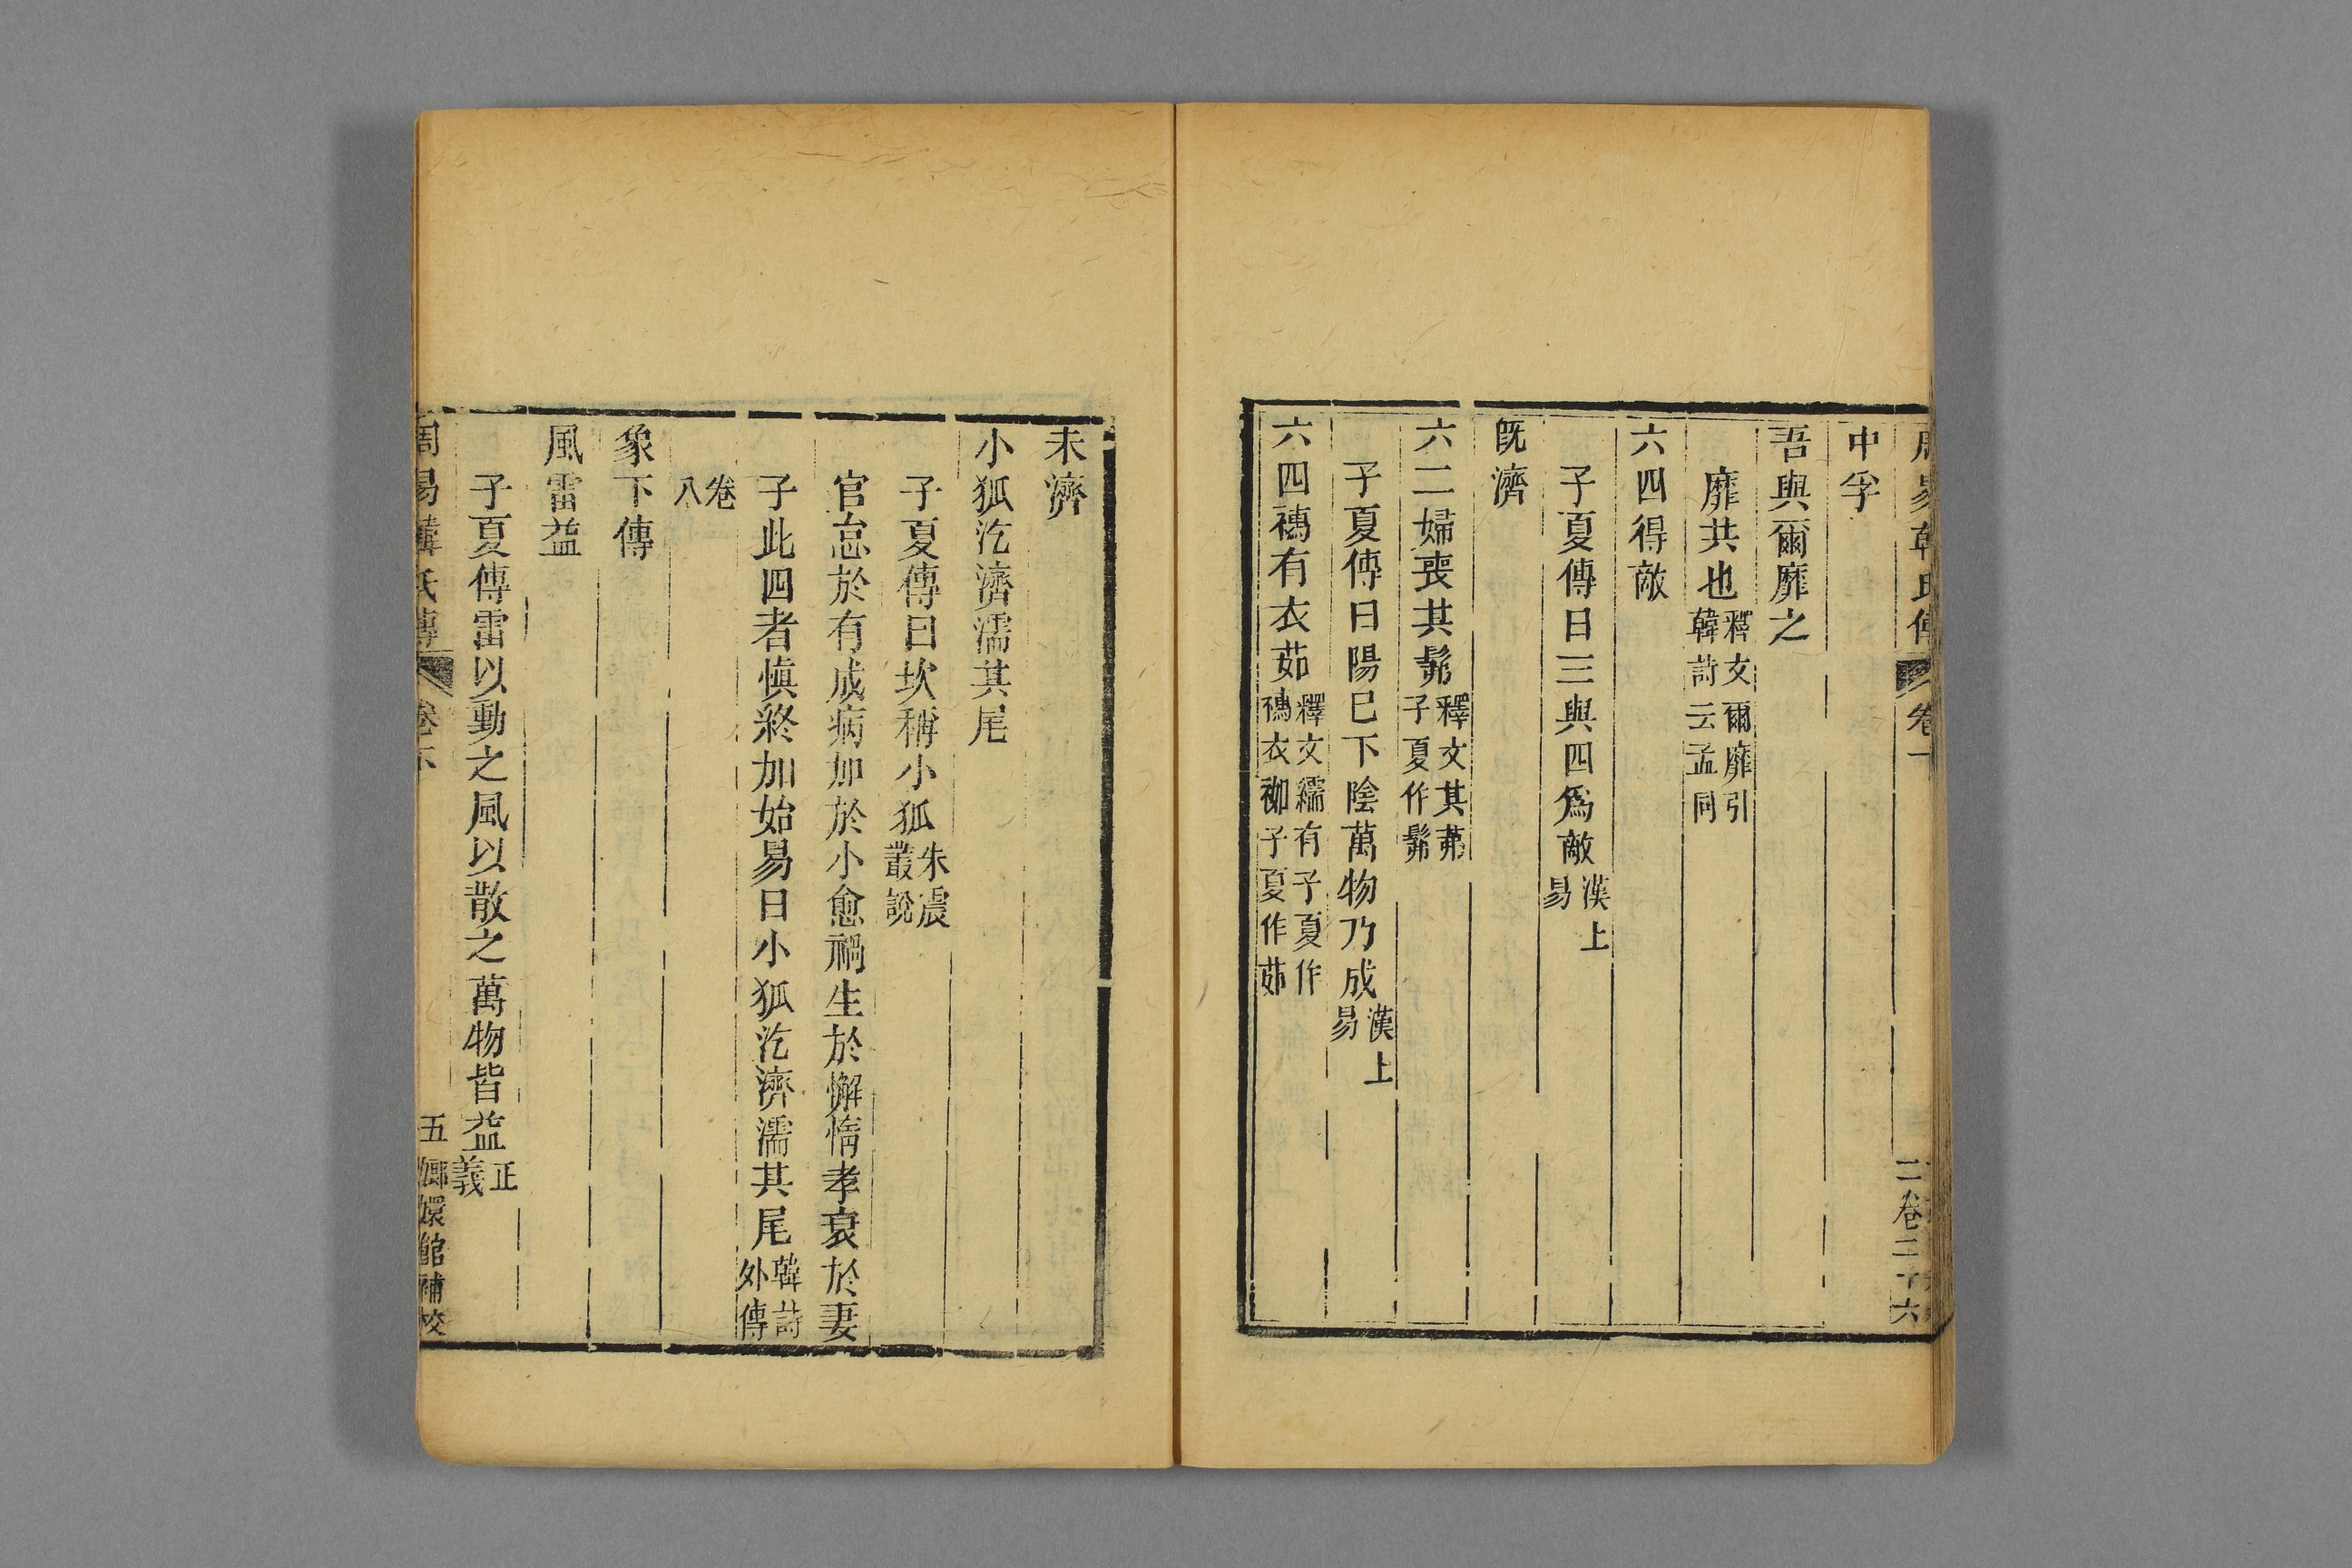 中孚
吾與爾靡之
靡共也釋文爾靡引韓詩云孟同
六四得敵
子夏傳曰三與四爲敵漢上易
旣濟
六二婦喪其髴釋文其茀子夏作髴
子夏傳曰陽巳下陰萬物乃成漢上易
六四襦有衣茹釋文繻有子夏作襦衣袽子夏作茹
未濟
小狐汔濟濡其尾
子夏傳曰坎稱小狐朱震叢說
官怠於有成病加於小愈禍生於懈惰孝衰於妻
子此四者愼終加始易曰小狐汔濟濡其尾韓詩外傳
卷八
象下傳
風雷益
子夏傳雷以動之風以散之萬物皆益正義
周易韓氏傳 卷下 五 嫏嬛館補校